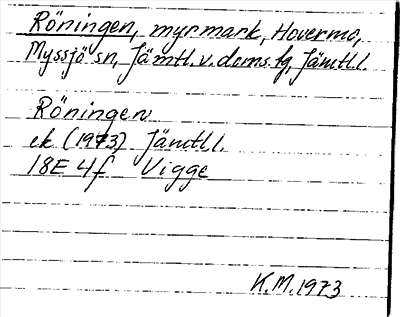 Röningen, myrmark, Hovermo,
Myssjö sn, Jämtl. v. doms. tg, Jämtl. l.
Röningen
ek (1973) Jämtl. l.
18E 4f Vigge
K.M. 1973